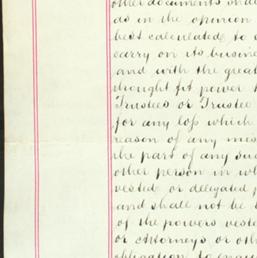 other documents
do in the opinion
best calculated to
carry on its busine
and with the great
thought fit power
Trustees or Trustee
for any loss which
reason of any
the part of any su
other person in wh
vested or delegated p
and shall not be
of the powers veste
or Attorneys or oth
obligation to enqui